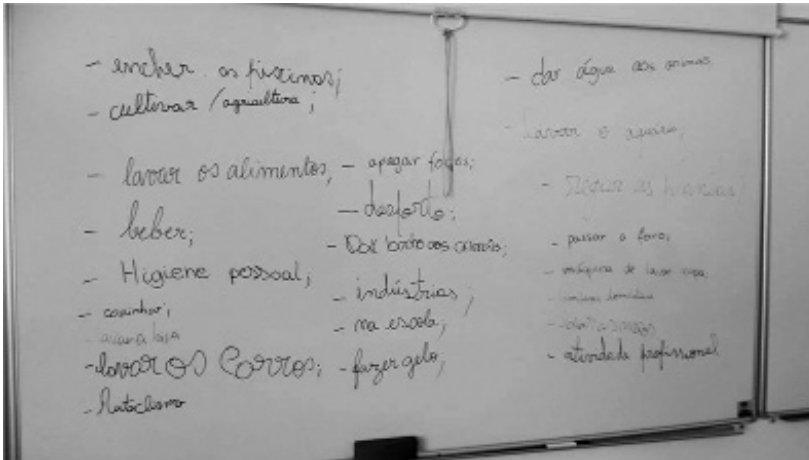 - encher as piscinas;
- cultivar / agricultura;
- lavar os alimentos;
- beber;
- Higiene pessoal;
- cozinhar;
- lavar a loiça
- lavar os Carros;
- apagar fogos;
- desporto;
- Dar banho aos animais;
- indústrias;
- na escola;
- fazer gelo;
- dar água aos animais
- Lavar o aquário;
- Regar as plantas;
- passar a ferro;
- máquina de lavar roupa;
- lavar as mãos
- atividade profissional